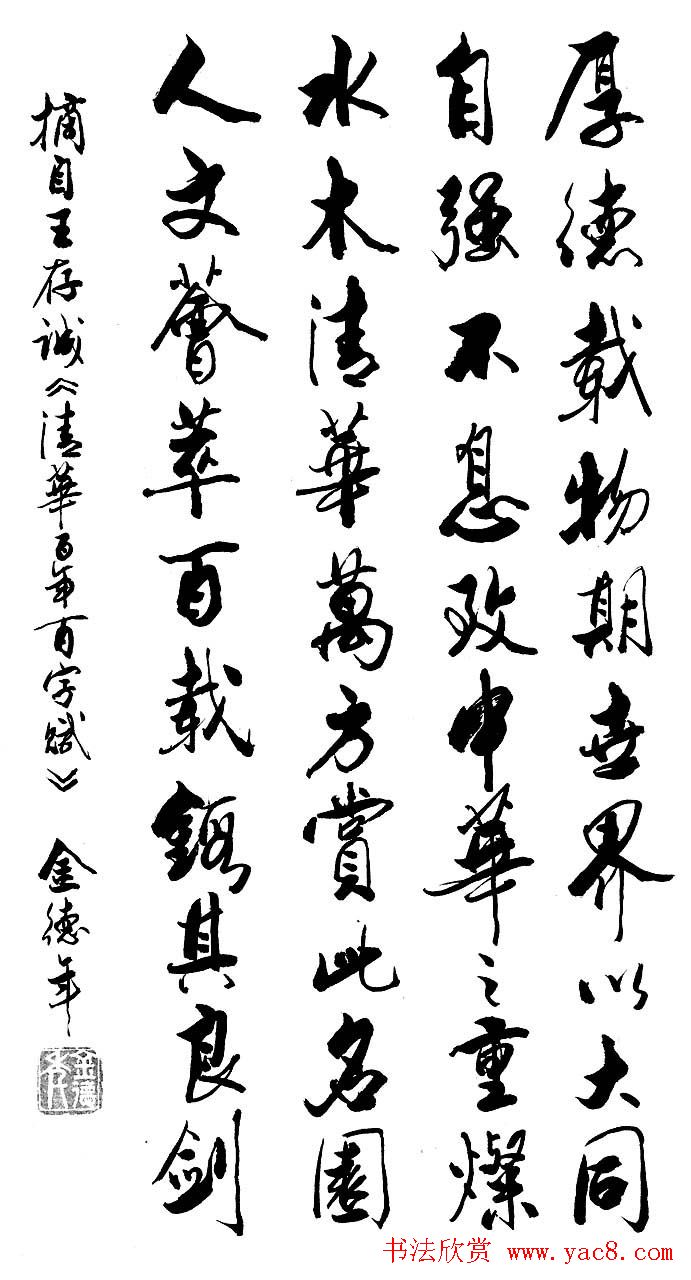 厚德载物期世界以大同
自强不息致中华之重燦
水木清華萬方賞此名園
人文薈萃百载鑄其良劍
摘自王存诚《清華百年百字赋》 金德年
金德年
书法欣赏 www.yac8.com